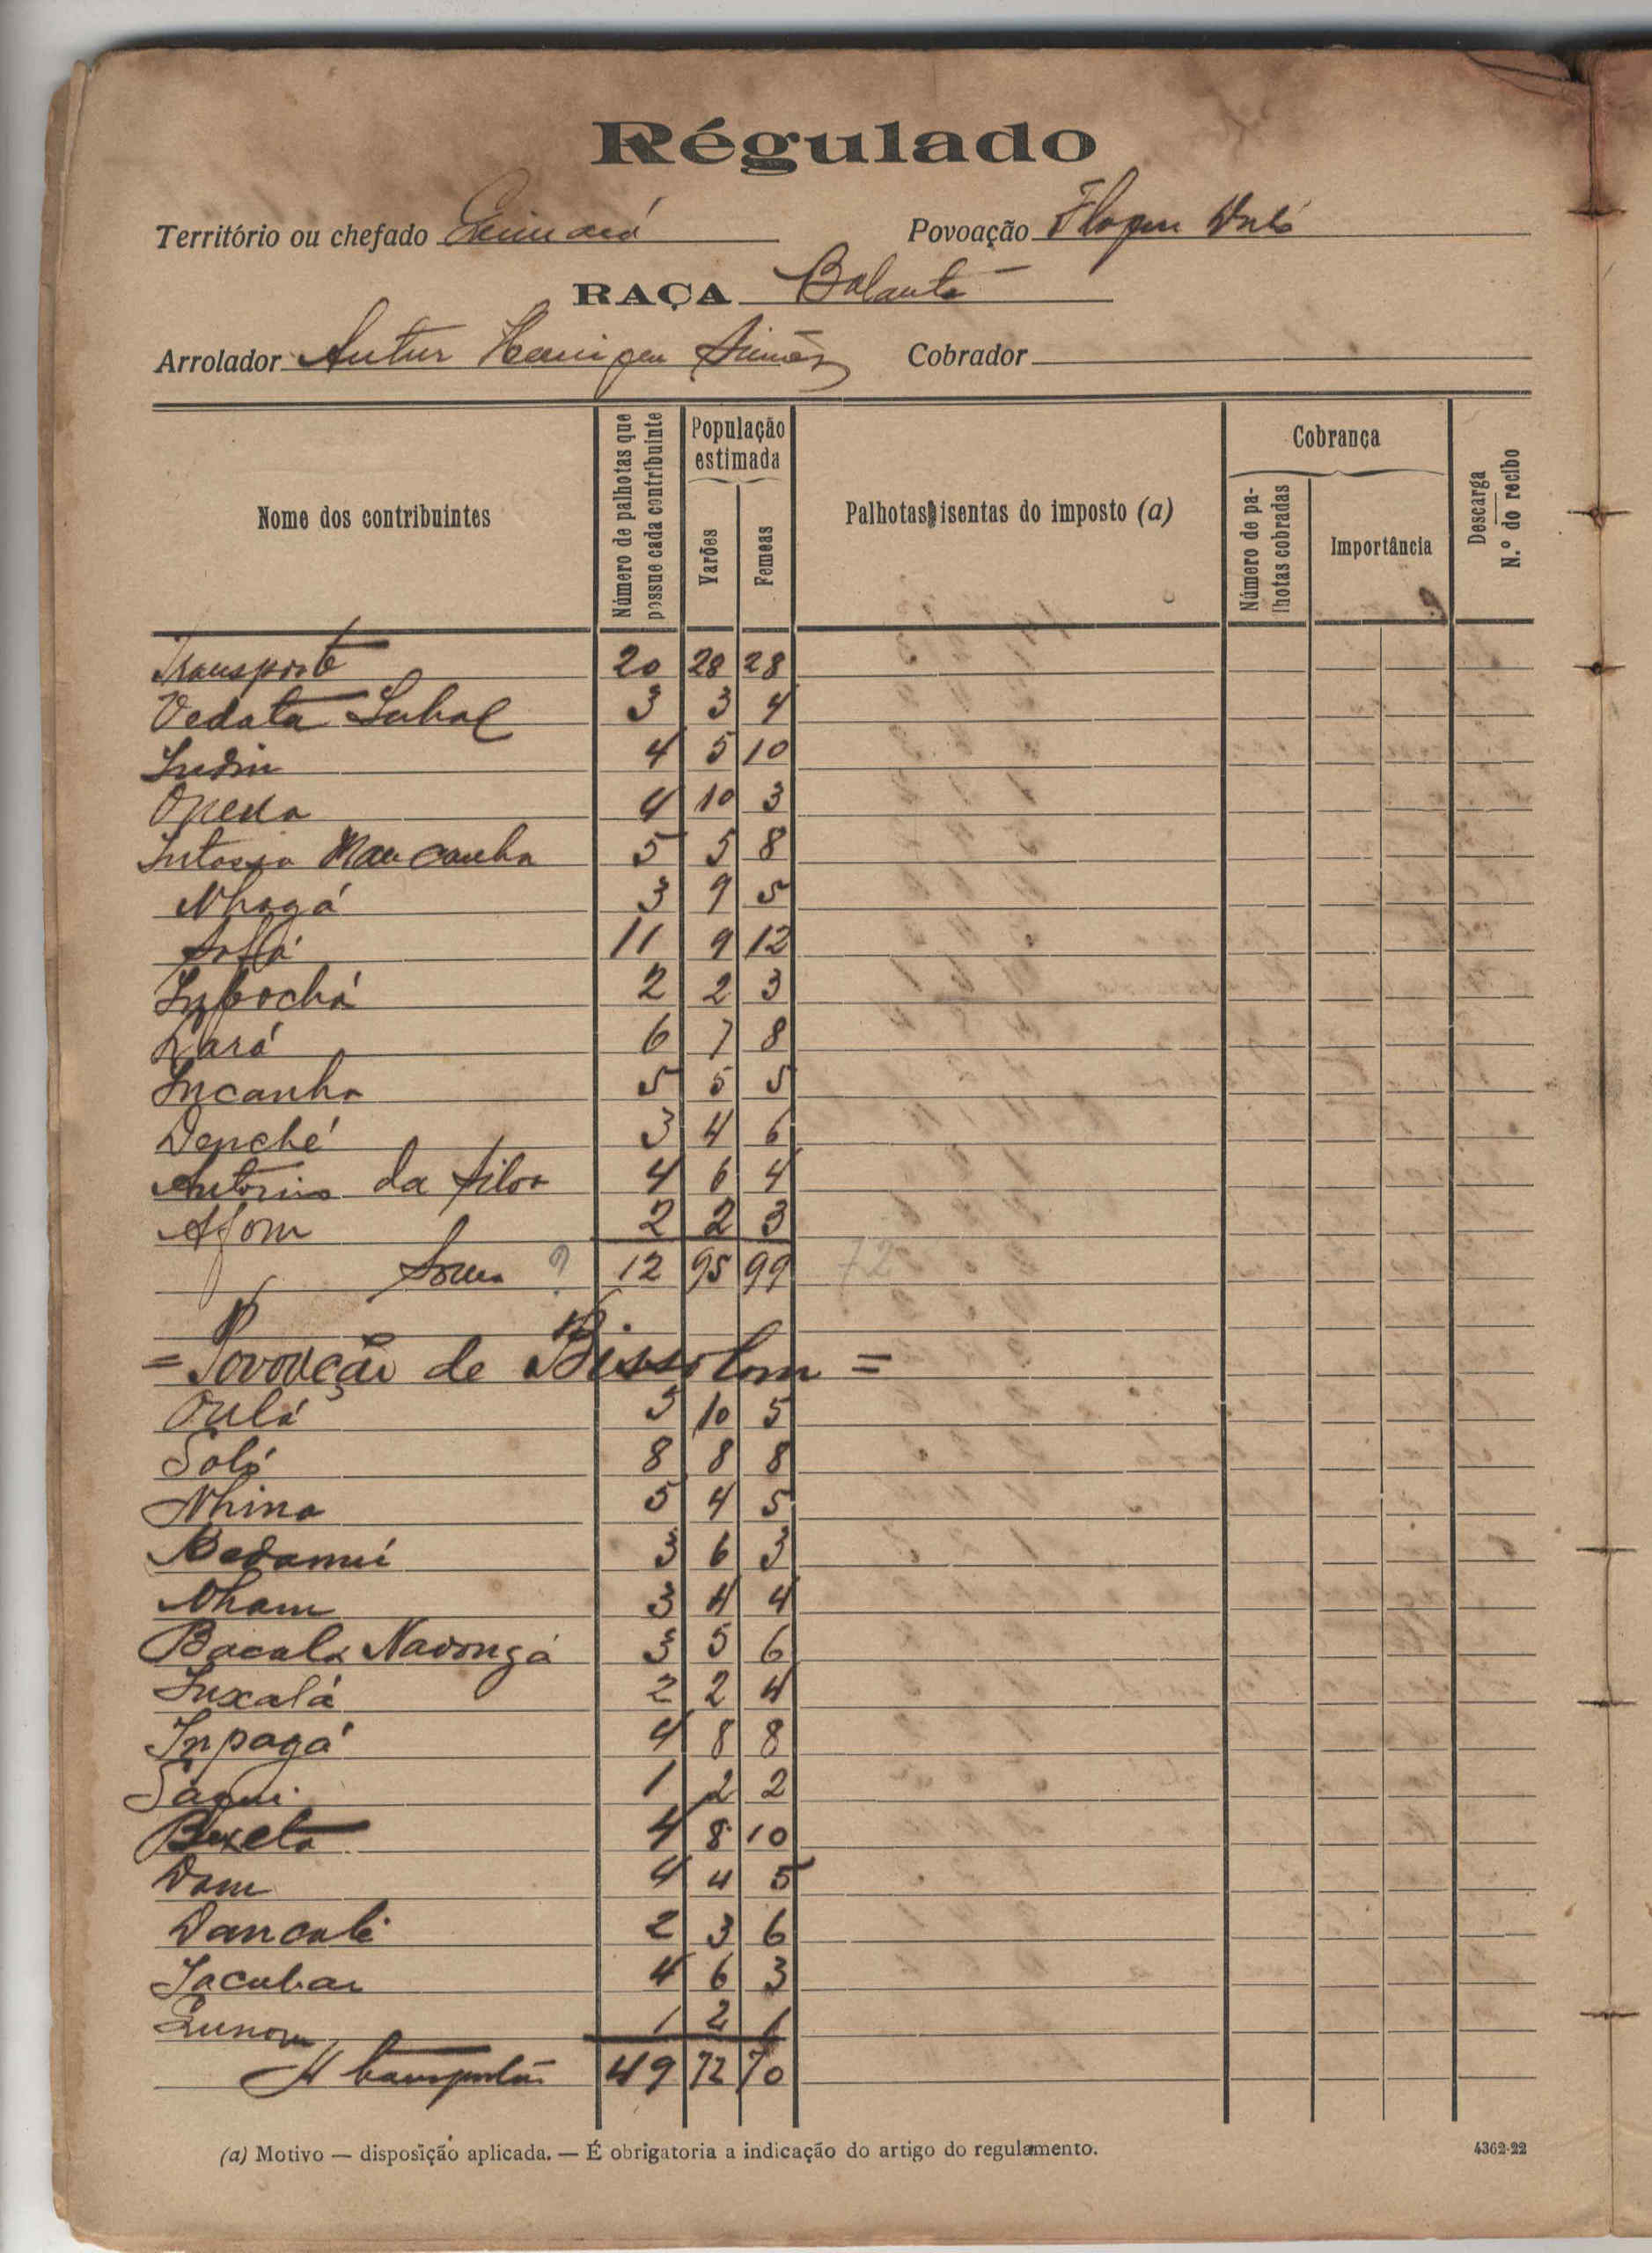 Régulado
Território ou chefado
Povoação
RAÇA Balanta
Arrolador Artur Henrique Simões Cobrador
Nome dos contribuintes
Número de palhotas que possue cada contribuinte
População estimada
Varões
Femeas
Palhotas isentas do imposto (a)
Cobrança
Número de palhotas cobradas
Importância
Descarga
N.º do recibo
Transporte 20 28 28
Vedata 3 3 4
Indin 4 5 10
4 10 3
Mancanha 5 5 8
Nhagá 3 9 5
11 9 12
Inbochá 2 2 3
6 7 8
Incanha 5 5 5
Denché 3 4 6
Antonio da Silva 4 6 4
Afom 2 2 3
Soma ? 12 95 99 72
= Povoação de Bissolom =
Oulá 5 10 5
8 8 8
Nhina 5 4 5
Bedamui 3 6 3
Nham 3 4 4
Bacala Navongá 3 5 6
Inxalá 2 2 4
Inpagá 4 8 8
1 2 2
Bexeta 4 8 10
Dam 4 4 5
Dancale 2 3 6
Iacubar 4 6 3
1 2 1
A transportar 49 72 70
(a) Motivo — disposição aplicada. — É obrigatoria a indicação do artigo do regulamento.
4362-22